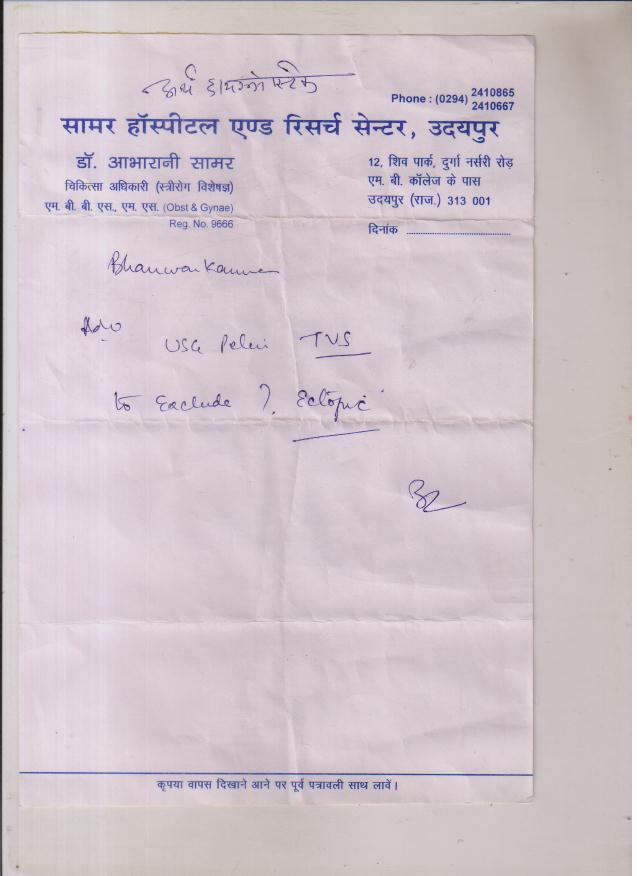 अर्थ डायग्नोस्टिक
Phone : (0294) 2410865
2410667
सामर हॉस्पीटल एण्ड रिसर्च सेन्टर, उदयपुर
डॉ. आभारानी सामर
चिकित्सा अधिकारी (स्त्रीरोग विशेषज्ञ)
एम. बी. बी. एस., एम. एस. (Obst & Gynae)
Reg. No. 9666
12, शिव पार्क, दुर्गा नर्सरी रोड़
एम. बी. कॉलेज के पास
उदयपुर (राज.) 313 001
दिनांक
Bhanwar
Adv
USG Pelvi TVS
to Exclude ? Ectopic
कृपया वापस दिखाने आने पर पूर्व पत्रावली साथ लावें।